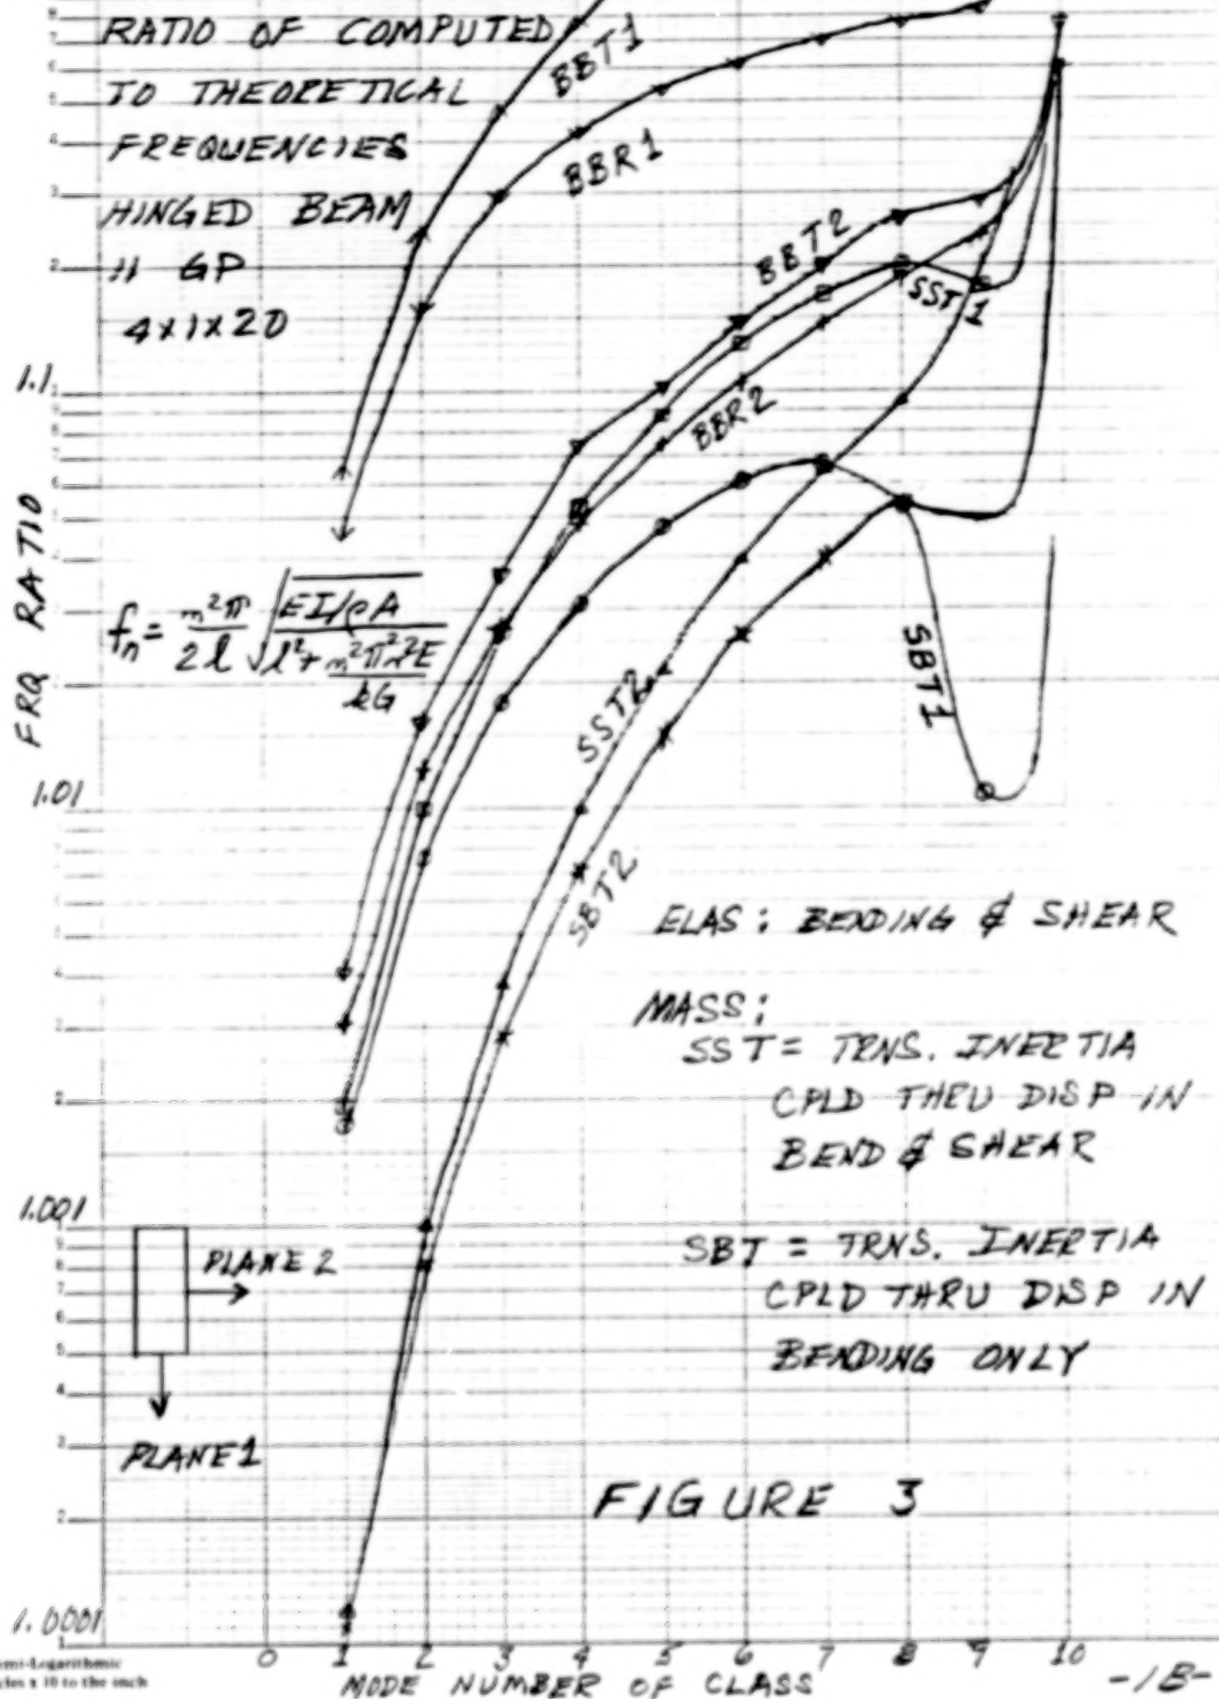 RATIO OF COMPUTED
TO THEORETICAL
FREQUENCIES
HINGED BEAM
11 GP
4x1x20
BBT1
BBR1
BBT2
SST1
BBR2
SST2
SBT2
SBT1
FRQ RATIO
1.1
1.01
1.001
1.0001
fn = m²π / 2l √(EI/ρA / l² + m²π²r²E / kG)
ELAS: BENDING & SHEAR
MASS:
SST = TRNS. INERTIA
CPLD THRU DISP IN
BEND & SHEAR
SBT = TRNS. INERTIA
CPLD THRU DISP IN
BENDING ONLY
PLANE 2
PLANE 1
FIGURE 3
0 1 2 3 4 5 6 7 8 9 10
MODE NUMBER OF CLASS
-18-
emi-Logarithmic
cles x 10 to the inch